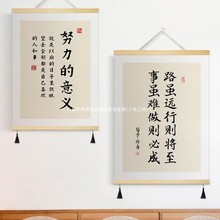 努力的意义
就是以后的日子里放眼
望去全部都是自己喜欢
的人和事
路虽远行则将至
事虽难做则必成